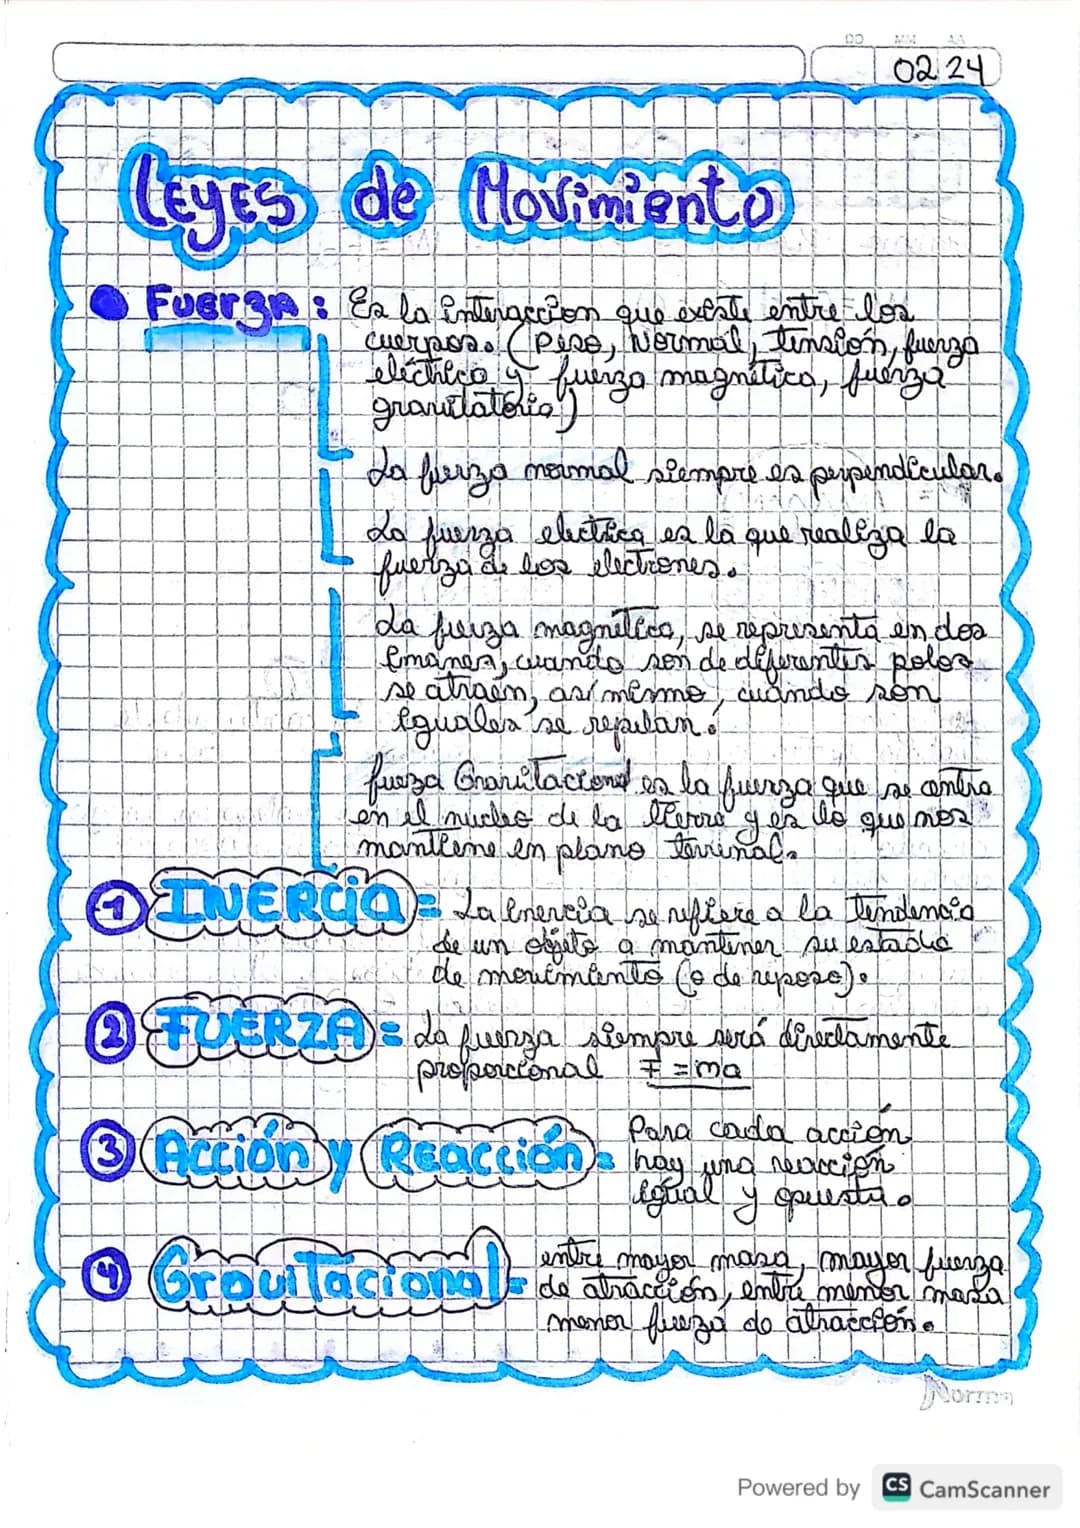 DD MM AA
02 24
LEYES de Movimiento
Fuerza: Es la interaccion que existe entre los
cuerpos. (Peso, Normal, tensión, fuerza
eléctrica y fuerza magnética, fuerza
gravitatoria)
La fuerza normal siempre es perpendicular.
La fuerza electrica es la que realiza la
fuerza de los electrones.
La fuerza magnética, se representa en dos
imanes, cuando son de diferentes polos
se atraen, así mismo, cuando son
iguales se repelan.
fueza Gravitacional es la fuerza que se centra
en el nucleo de la tierra y es lo que nos
mantiene en plano terrinal.
1 INERCIA = La inercia se refiere a la tendencia
de un objeto a mantener su estado
de movimiento (o de reposo).
2 FUERZA = La fuerza siempre será directamente
proporcional F = ma
3 Acción y Reacción = Para cada acción
hay una reacción
igual y opuesta.
4 Gravitacional = entre mayor masa, mayor fuerza
de atracción, entre menor masa
menor fueza de atracción.
Norma
Powered by CS CamScanner